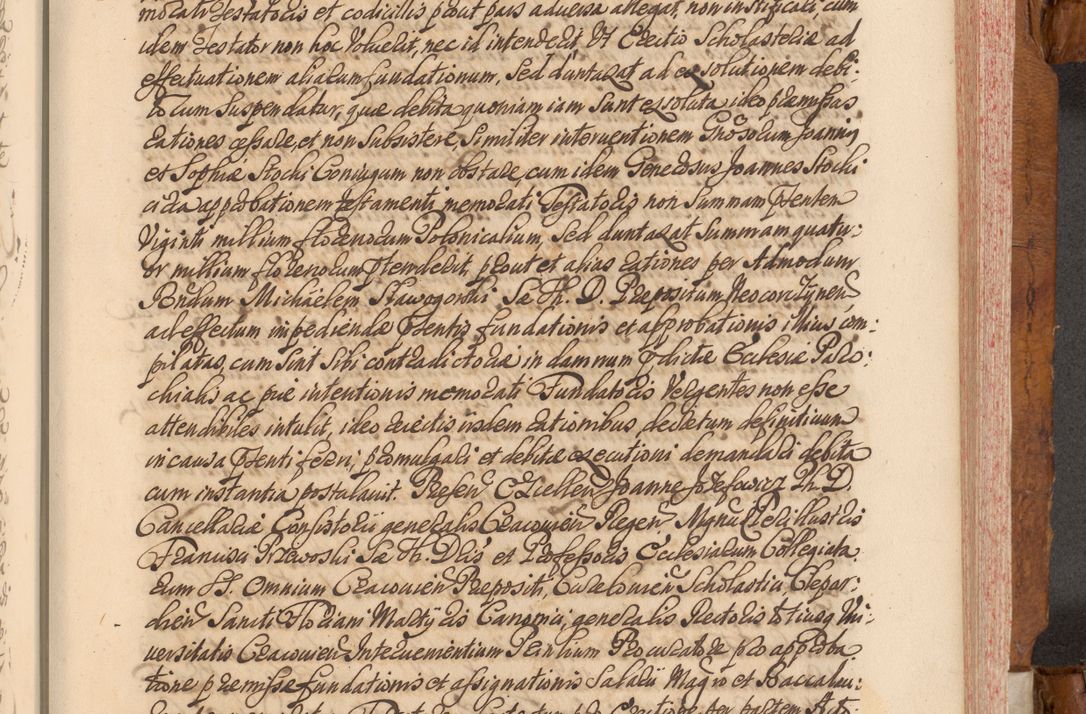 morati Testatoris et codicillis prout pars adversa allegat, non iustificali cum
idem Testator non hoc Voluerit, nec id intenderit Ut Erectio Scholasteriæ ad
effectuationem aliarum fundationum, Sed duntaxat ad exsolutionem debi-
torum Suspendatur, quæ debita quoniam iam Sunt exsoluta ideo præmissas
rationes cessare, et non Subsistere, Similiter interventionem Gnosorum Joannis
et Sophiæ Stochi Coniugum non obstare, cum idem Generosus Joannes Stochi
circa approbationem testamenti memorati Testatoris non Summam Pñtem
Viginti millium florenorum Polonicalium, Sed duntaxat Summam quatu-
or millium florenorum prætenderit, prout et alias rationes per Admodum
Rñdum Michaelem Stawogorski Sæ Th. D. Præpositum Neocorczynen
ad effectum impediendæ Pñtis fundationis et approbationis illius com-
pilatas, cum Sint Sibi contradictoriæ in damnum p̃dictæ Ecclesiæ Paro-
chialis ac piæ intentionis memorati Fundatoris Vergentes non esse
attendibiles intulit, ideo reiectis iisdem rationibus, decretum definitivum
in causa Pñti ferri, promulgari et debitæ executioni demandari debita
cum instantia postulavit. Præsen Excellen Joanne Jozefowicz Ph. D.
Cancellariæ Consistorii generalis Cracovien Regen Mgnus Perillustris
Francisci Przewoski Sæ Th. Dris et Professoris Ecclesiarum Collegiata-
rum SS. Omnium Cracovien Præpositi, Curzelovien Scholastici, Clepar-
dien Sancti Floriani Martyris Canonici, generalis Rectoris totiusq Uni-
versitatis Cracovien Intervenientium Principalium Procuratore pro approba-
tione præmissæ fundationis et assignationis Salarii Magro et Baccalau-